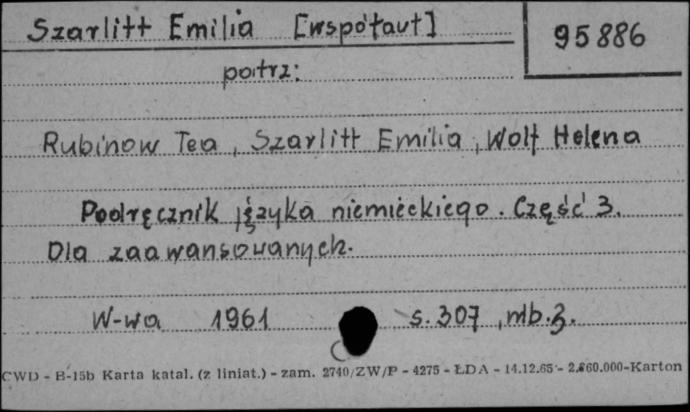 Szarlitt Emilia [współaut]
95886
patrz:
Rubinow Tea, Szarlitt Emilia, Wolf Helena
Podręcznik języka niemieckiego. Część 3.
Dla zaawansowanych.
W-wa 1961 s. 307, nlb. 3.
CWD - B-15b Karta katal. (z liniat.) - zam. 2740/ZW/P - 4275 - ŁDA - 14.12.65 - 2.860.000-Karton